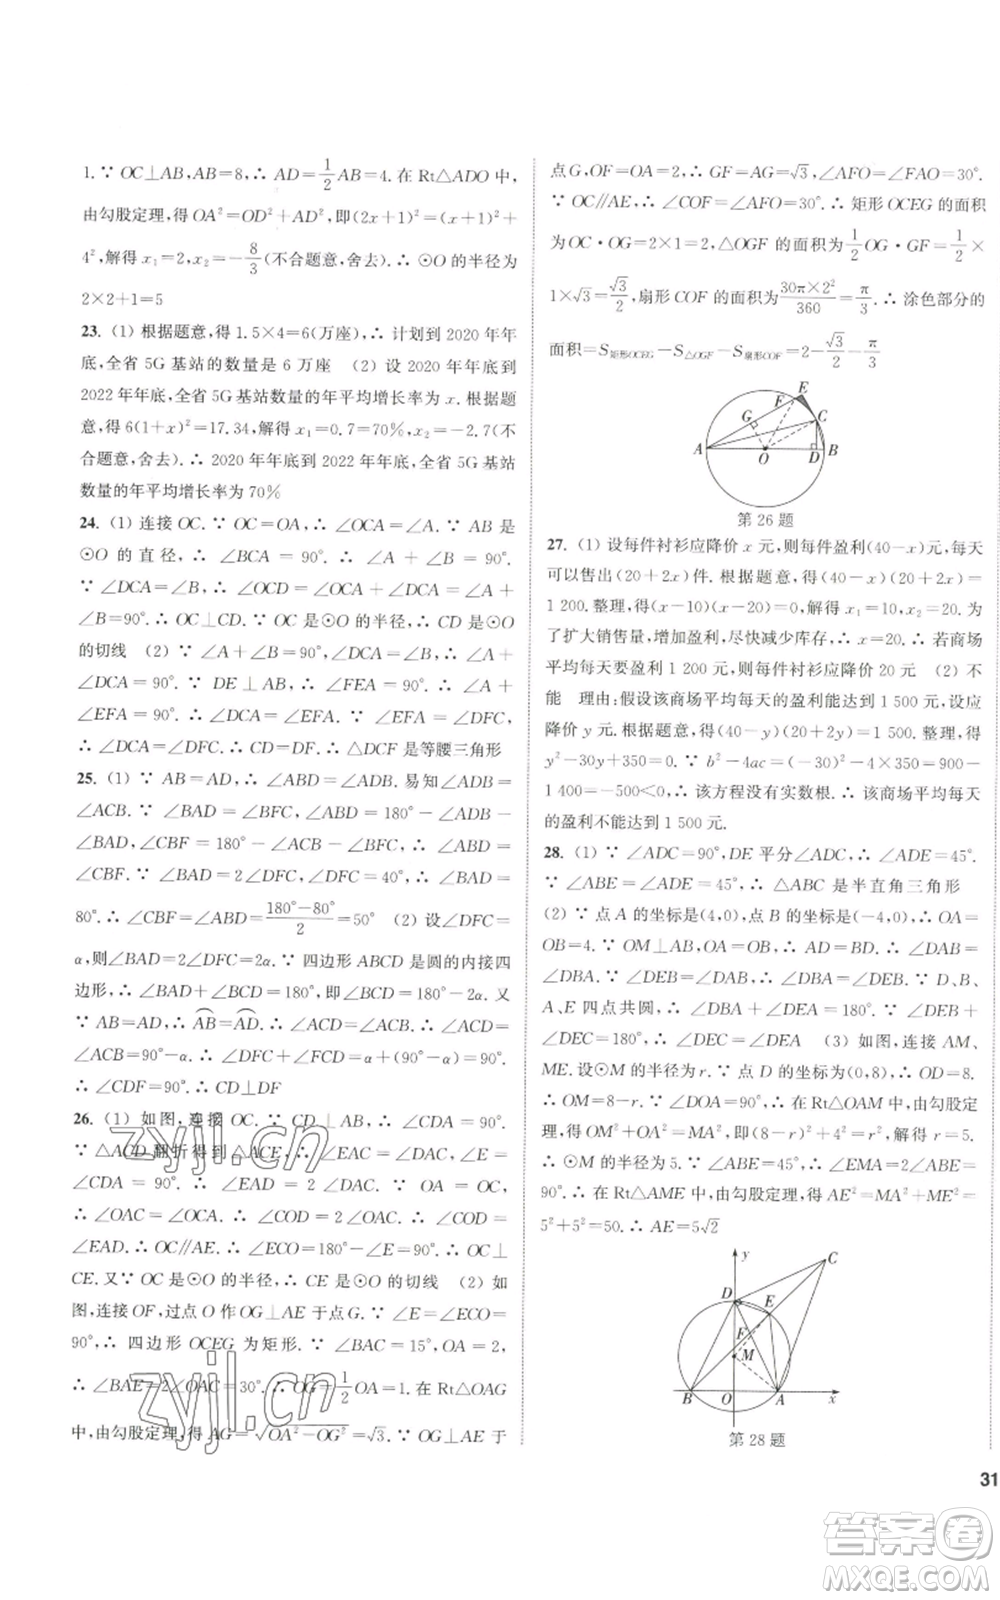 1.∵ OC⊥AB,AB=8,∴ AD=1/2AB=4.在 Rt△ADO 中,
由勾股定理,得 OA²=OD²+AD²,即(2x+1)²=(x+1)²+
4²,解得 x₁=2,x₂=-8/3(不合题意,舍去).∴ ⊙O 的半径为
2×2+1=5
23. (1) 根据题意,得 1.5×4=6(万座),∴ 计划到 2020 年年
底,全省 5G 基站的数量是 6 万座 (2) 设 2020 年年底到
2022 年年底,全省 5G 基站数量的年平均增长率为 x.根据题
意,得 6(1+x)²=17.34,解得 x₁=0.7=70%,x₂=-2.7(不
合题意,舍去).∴ 2020 年年底到 2022 年年底,全省 5G 基站
数量的年平均增长率为 70%
24. (1) 连接 OC.∵ OC=OA,∴ ∠OCA=∠A.∵ AB 是
⊙O 的直径,∴ ∠BCA=90°.∴ ∠A+∠B=90°.
∵ ∠DCA=∠B,∴ ∠OCD=∠OCA+∠DCA=∠A+
∠B=90°.∴ OC⊥CD.∵ OC 是⊙O 的半径,∴ CD 是⊙O
的切线 (2) ∵ ∠A+∠B=90°,∠DCA=∠B,∴ ∠A+
∠DCA=90°.∵ DE⊥AB,∴ ∠FEA=90°.∴ ∠A+
∠EFA=90°.∴ ∠DCA=∠EFA.∵ ∠EFA=∠DFC,
∴ ∠DCA=∠DFC.∴ CD=DF.∴ △DCF 是等腰三角形
25. (1) ∵ AB=AD,∴ ∠ABD=∠ADB.易知∠ADB=
∠ACB.∵ ∠BAD=∠BFC,∠ABD=180°-∠BAD-
∠ADB,∠CBF=180°-∠ACB-∠BFC,∴ ∠ABD=
∠CBF.∵ ∠BAD=∠BFC=2∠DFC=2×40°=
80°.∴ ∠CBF=∠ABD=(180°-80°)/2=50° (2) 设∠DFC=
α,则∠BAD=2∠DFC=2α.∵ 四边形 ABCD 是圆的内接四
边形,∴ ∠BAD+∠BCD=180°,即∠BCD=180°-2α.又
∵ AB=AD,∴ AB⌒=AD⌒.∴ ∠ACD=∠ACB.∴ ∠ACD=
∠ACB=90°-α.∴ ∠DFC+∠FCD=α+(90°-α)=90°.
∴ ∠CDF=90°.∴ CD⊥DF
26. (1) 如图,连接 OC.∵ CD⊥AB,∴ ∠CDA=90°.
∵ △ACD 翻折得到△ACE,∴ ∠EAC=∠DAC,∠E=
∠CDA=90°.∴ ∠EAD=2∠DAC.∵ OA=OC,
∴ ∠OAC=∠OCA.∴ ∠COD=2∠OAC.∴ ∠COD=
∠EAD.∴ OC∥AE.∴ ∠ECO=180°-∠E=90°.∴ OC⊥
CE.又∵ OC 是⊙O 的半径,∴ CE 是⊙O 的切线 (2) 如
图,连接 OF,过点 O 作 OG⊥AE 于点 G.∵ ∠E=∠ECO=
90°,∴ 四边形 OCEG 为矩形.∵ ∠BAC=15°,OA=2,
∴ ∠BAE=2∠OAC=30°.∴ OG=1/2OA=1.在 Rt△OAG
中,由勾股定理,得 AG=√(OA²-OG²)=√3.∵ OG⊥AF 于
点 G,OF=OA=2,∴ GF=AG=√3,∠AFO=∠FAO=30°.
∵ OC∥AE,∴ ∠COF=∠AFO=30°.∴ 矩形 OCEG 的面积
为 OC·OG=2×1=2,△OGF 的面积为1/2OG·GF=1/2×
1×√3=√3/2,扇形 COF 的面积为(30π×2²)/360=π/3.∴ 涂色部分的
面积=S矩形OCEG-S△OGF-S扇形COF=2-√3/2-π/3
E
F
G
C
A
O
D
B
第 26 题
27. (1) 设每件衬衫应降价 x 元,则每件盈利(40-x)元,每天
可以售出(20+2x)件.根据题意,得(40-x)(20+2x)=
1 200.整理,得(x-10)(x-20)=0,解得 x₁=10,x₂=20.为
了扩大销售量,增加盈利,尽快减少库存,∴ x=20.∴ 若商场
平均每天要盈利 1 200 元,则每件衬衫应降价 20 元 (2) 不
能 理由:假设该商场平均每天的盈利能达到 1 500 元,设应
降价 y 元.根据题意,得(40-y)(20+2y)=1 500.整理,得
y²-30y+350=0.∵ b²-4ac=(-30)²-4×350=900-
1 400=-500<0,∴ 该方程没有实数根.∴ 该商场平均每天
的盈利不能达到 1 500 元.
28. (1) ∵ ∠ADC=90°,DE 平分∠ADC,∴ ∠ADE=45°.
∵ ∠ABE=∠ADE=45°,∴ △ABC 是半直角三角形
(2) ∵ 点 A 的坐标为(4,0),点 B 的坐标为(-4,0),∴ OA=
OB=4.∵ OM⊥AB,OA=OB,∴ AD=BD.∴ ∠DAB=
∠DBA.∵ ∠DEB=∠DAB,∴ ∠DBA=∠DEB.∵ D、B、
A、E 四点共圆,∴ ∠DBA+∠DEA=180°.∵ ∠DEB+
∠DEC=180°,∴ ∠DEC=∠DEA (3) 如图,连接 AM、
ME.设⊙M 的半径为 r.∵ 点 D 的坐标为(0,8),∴ OD=8.
∴ OM=8-r.∵ ∠DOA=90°,∴ 在 Rt△OAM 中,由勾股定
理,得 OM²+OA²=MA²,即(8-r)²+4²=r²,解得 r=5.
∴ ⊙M 的半径为 5.∵ ∠ABE=45°,∴ ∠EMA=2∠ABE=
90°.∴ 在 Rt△AME 中,由勾股定理,得 AE²=MA²+ME²=
5²+5²=50.∴ AE=5√2
y
C
D
E
F
M
B
O
A
x
第 28 题
31
zyjl.cn
zyjl.cn
答案卷
MXQE.COM